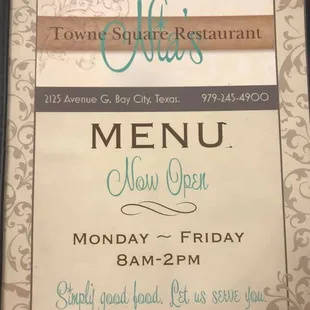 Nia's
Towne Square Restaurant
2125 Avenue G, Bay City, Texas. 979-245-4900
MENU
Now Open
Monday ~ Friday
8am-2pm
Simply good food. Let us serve you.